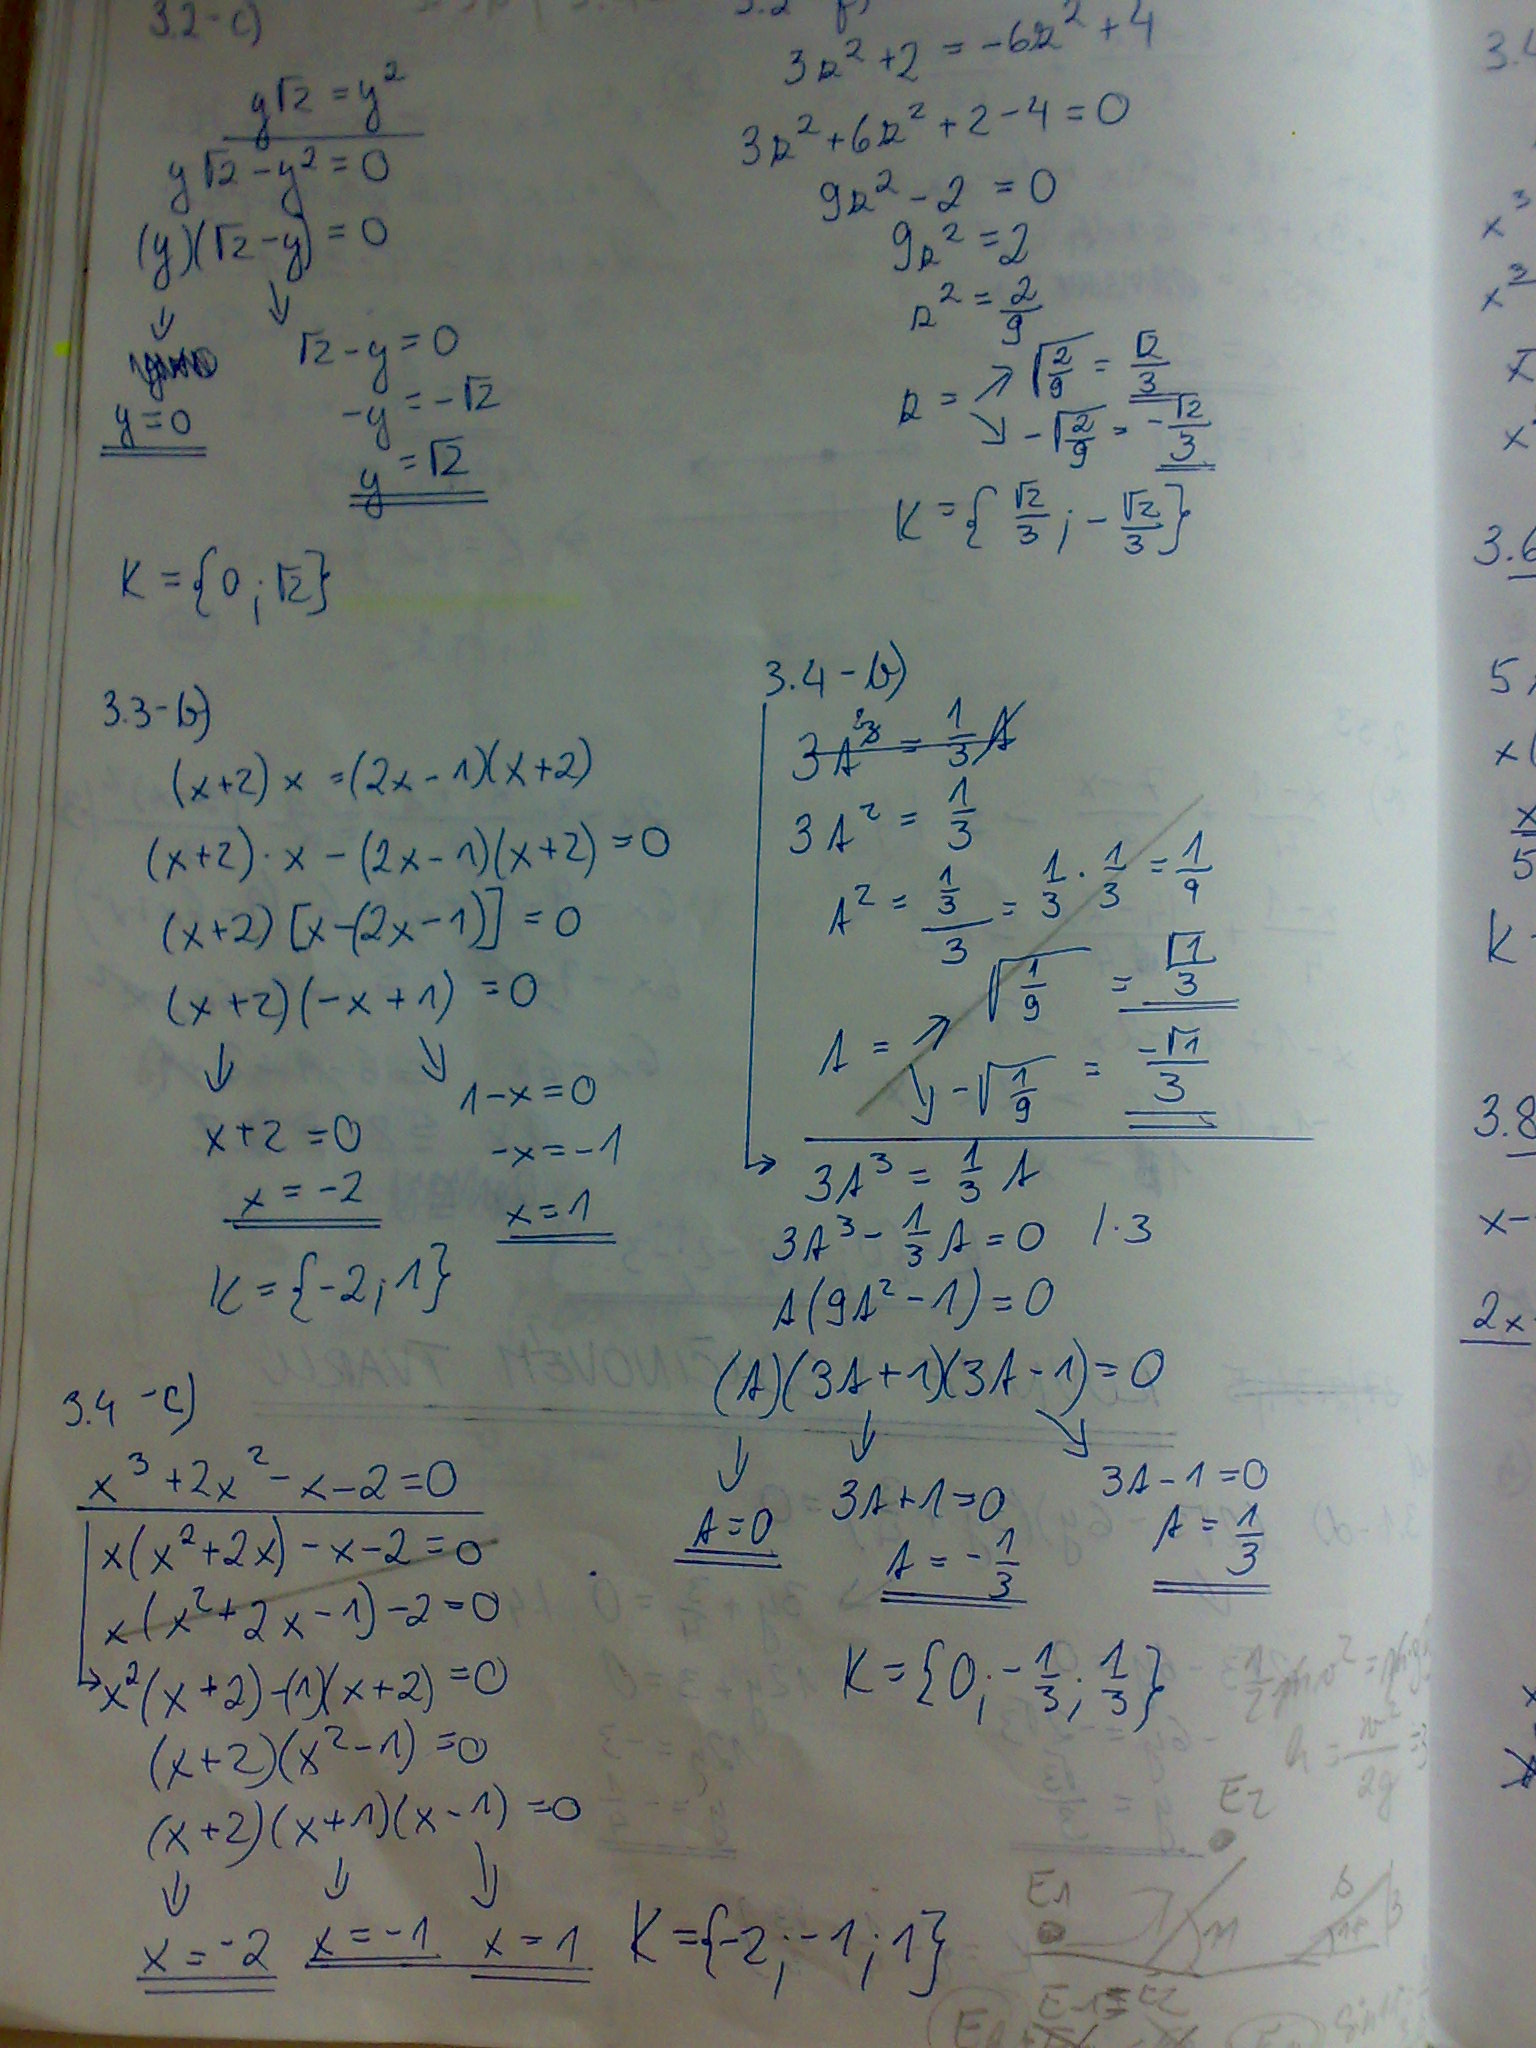 3.2-c)
y√2 = y²
y√2 - y² = 0
(y)(√2 - y) = 0
↓ ↘
y = 0
√2 - y = 0
-y = -√2
y = √2
K = {0 ; √2}
3r² + 2 = -6r² + 4
3r² + 6r² + 2 - 4 = 0
9r² - 2 = 0
9r² = 2
r² = 2/9
r = ↗ √(2/9) = √2/3
↘ -√(2/9) = -√2/3
K = {√2/3 ; -√2/3}
3.3-b)
(x+2) x = (2x-1)(x+2)
(x+2)·x - (2x-1)(x+2) = 0
(x+2) [x-(2x-1)] = 0
(x+2)(-x+1) = 0
↓ ↘
x+2 = 0
x = -2
1-x = 0
-x = -1
x = 1
K = {-2 ; 1}
3.4-b)
3A³ = 1/3 A
3A² = 1/3
A² = (1/3)/3 = 1/3 · 1/3 = 1/9
A = ↗ √(1/9) = √1/3
↘ -√(1/9) = -√1/3
3A³ = 1/3 A
3A³ - 1/3 A = 0 /·3
A(9A² - 1) = 0
(A)(3A+1)(3A-1) = 0
↓ ↓ ↘
A = 0
3A+1 = 0
A = -1/3
3A-1 = 0
A = 1/3
K = {0 ; -1/3 ; 1/3}
3.4-c)
x³ + 2x² - x - 2 = 0
x(x² + 2x) - x - 2 = 0
x(x² + 2x - 1) - 2 = 0
x²(x+2) - (1)(x+2) = 0
(x+2)(x² - 1) = 0
(x+2)(x+1)(x-1) = 0
↓ ↓ ↘
x = -2 x = -1 x = 1 K = {-2 ; -1 ; 1}
E2
E1
3.4
x³
x³
3.6
K
3.8
x-
2x